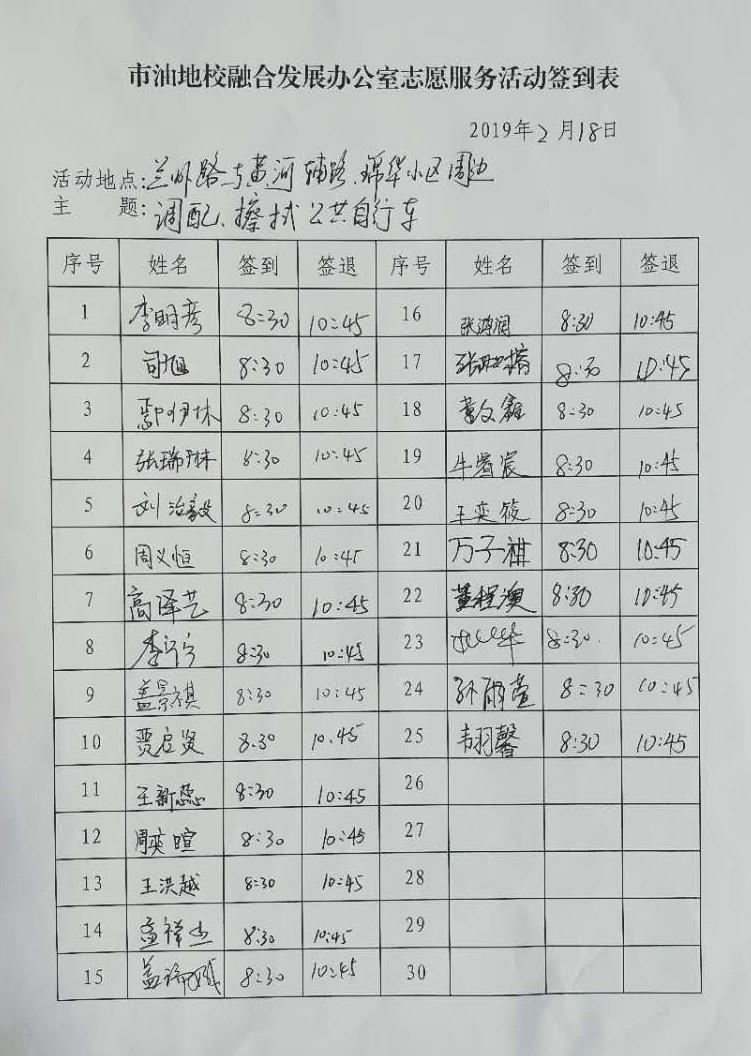 市油地校融合发展办公室志愿服务活动签到表
2019年2月18日
活动地点:兰州路与黄河辅路、锦华小区周边
主 题:调配、擦拭公共自行车
序号 姓名 签到 签退 序号 姓名 签到 签退
1 李明彦 8:30 10:45 16 张鸿润 8:30 10:45
2 司旭 8:30 10:45 17 8:30 10:45
3 鄢伊林 8:30 10:45 18 董文鑫 8:30 10:45
4 张瑞琳 8:30 10:45 19 牛睿宸 8:30 10:45
5 刘治毅 8:30 10:45 20 王奕筱 8:30 10:45
6 周义恒 8:30 10:45 21 万子祺 8:30 10:45
7 高泽艺 8:30 10:45 22 董程澳 8:30 10:45
8 8:30 10:45 23 8:30 10:45
9 盖景祺 8:30 10:45 24 孙雨萱 8:30 10:45
10 贾启贤 8:30 10:45 25 韦羽馨 8:30 10:45
11 王新蕊 8:30 10:45 26
12 周奕暄 8:30 10:45 27
13 王洪越 8:30 10:45 28
14 8:30 10:45 29
15 8:30 10:45 30